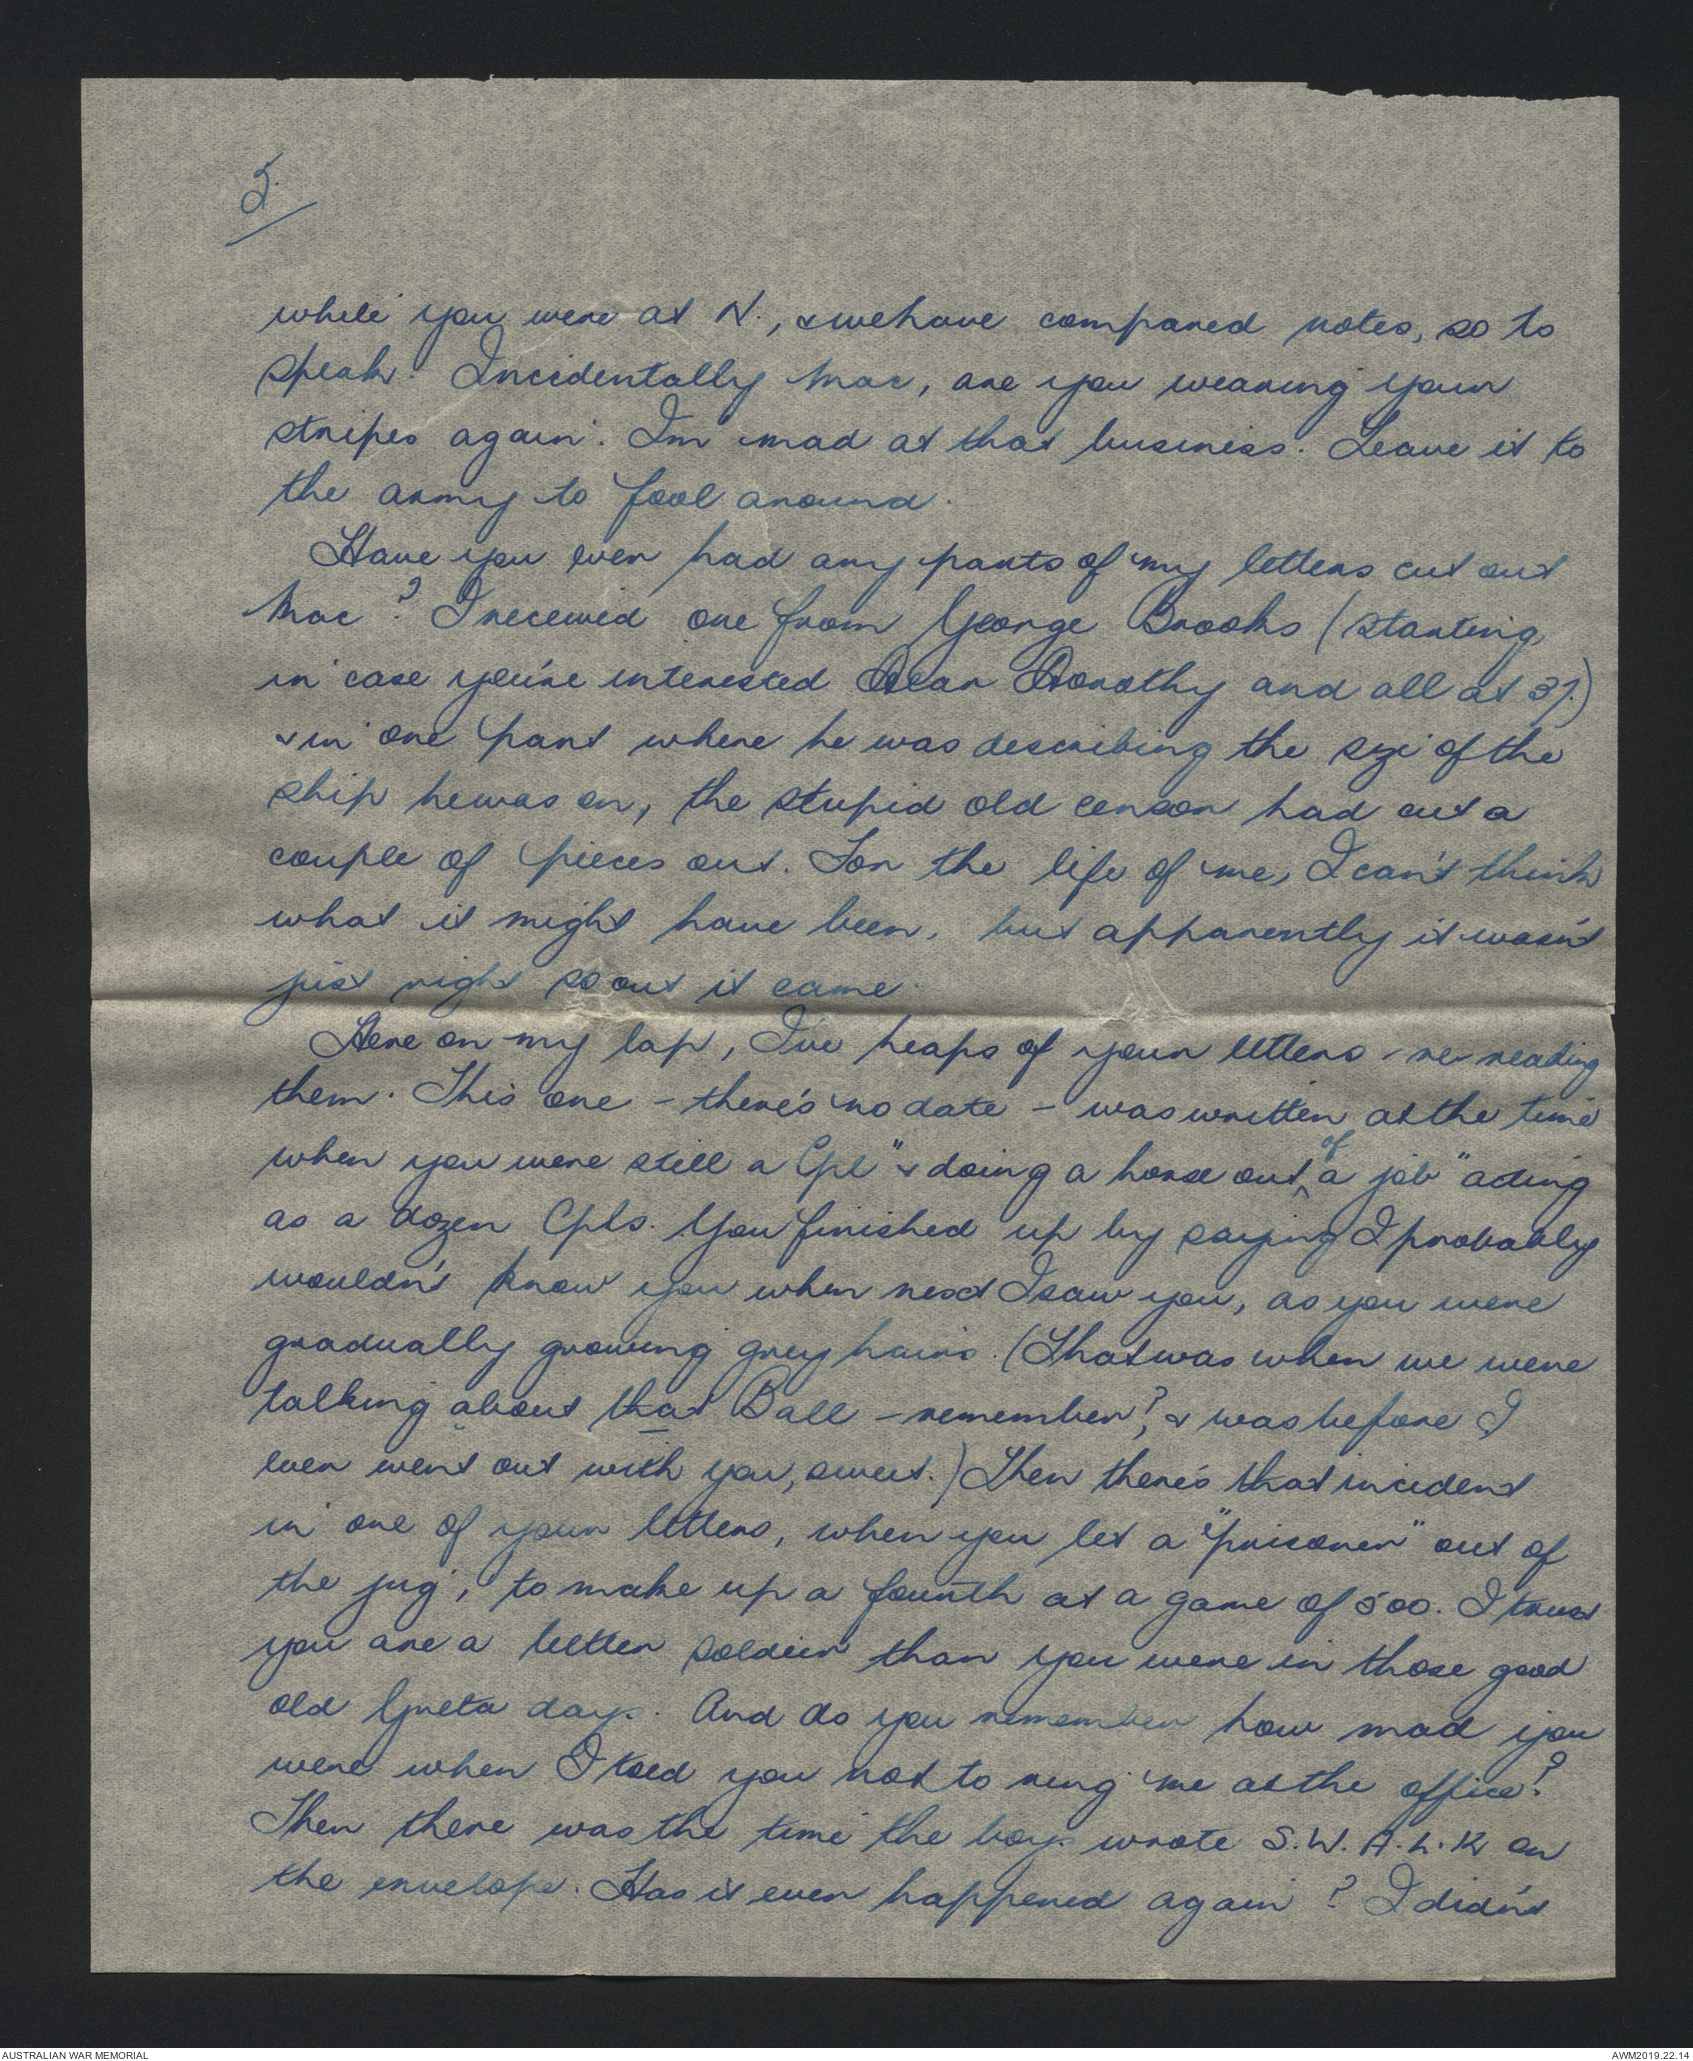 5.
while you were at N., & we have compared notes, so to
speak. Incidentally Mac, are you wearing your
stripes again. I'm mad at that business. Leave it to
the army to fool around.
Have you ever had any parts of my letters cut out
Mac? I received one from George Brooks (starting,
in case you're interested Dear Dorothy and all at 37.)
& in one part where he was describing the size of the
ship he was on, the stupid old censor had cut a
couple of pieces out. For the life of me, I can't think
what it might have been, but apparently it wasn't
just right so out it came.
Here on my lap, I've heaps of your letters - re-reading
them. This one - there's no date - was written at the time
when you were still a Cpl "& doing a horse out of a job" acting
as a dozen Cpls. You finished up by saying I probably
wouldn't know you when next I saw you, as you were
gradually growing grey hairs. (That was when we were
talking about that Ball - remember?, & was before I
even went out with you, sweet.) Then there's that incident
in one of your letters, when you let a "prisoner" out of
the jug, to make up a fourth at a game of 500. I trust
you are a better soldier than you were in those good
old Greta days. And do you remember how mad you
were when I told you not to ring me at the office?
Then there was the time the boys wrote S.W.A.L.K on
the envelope. Has it ever happened again? I didn't
AUSTRALIAN WAR MEMORIAL
AWM2019.22.14